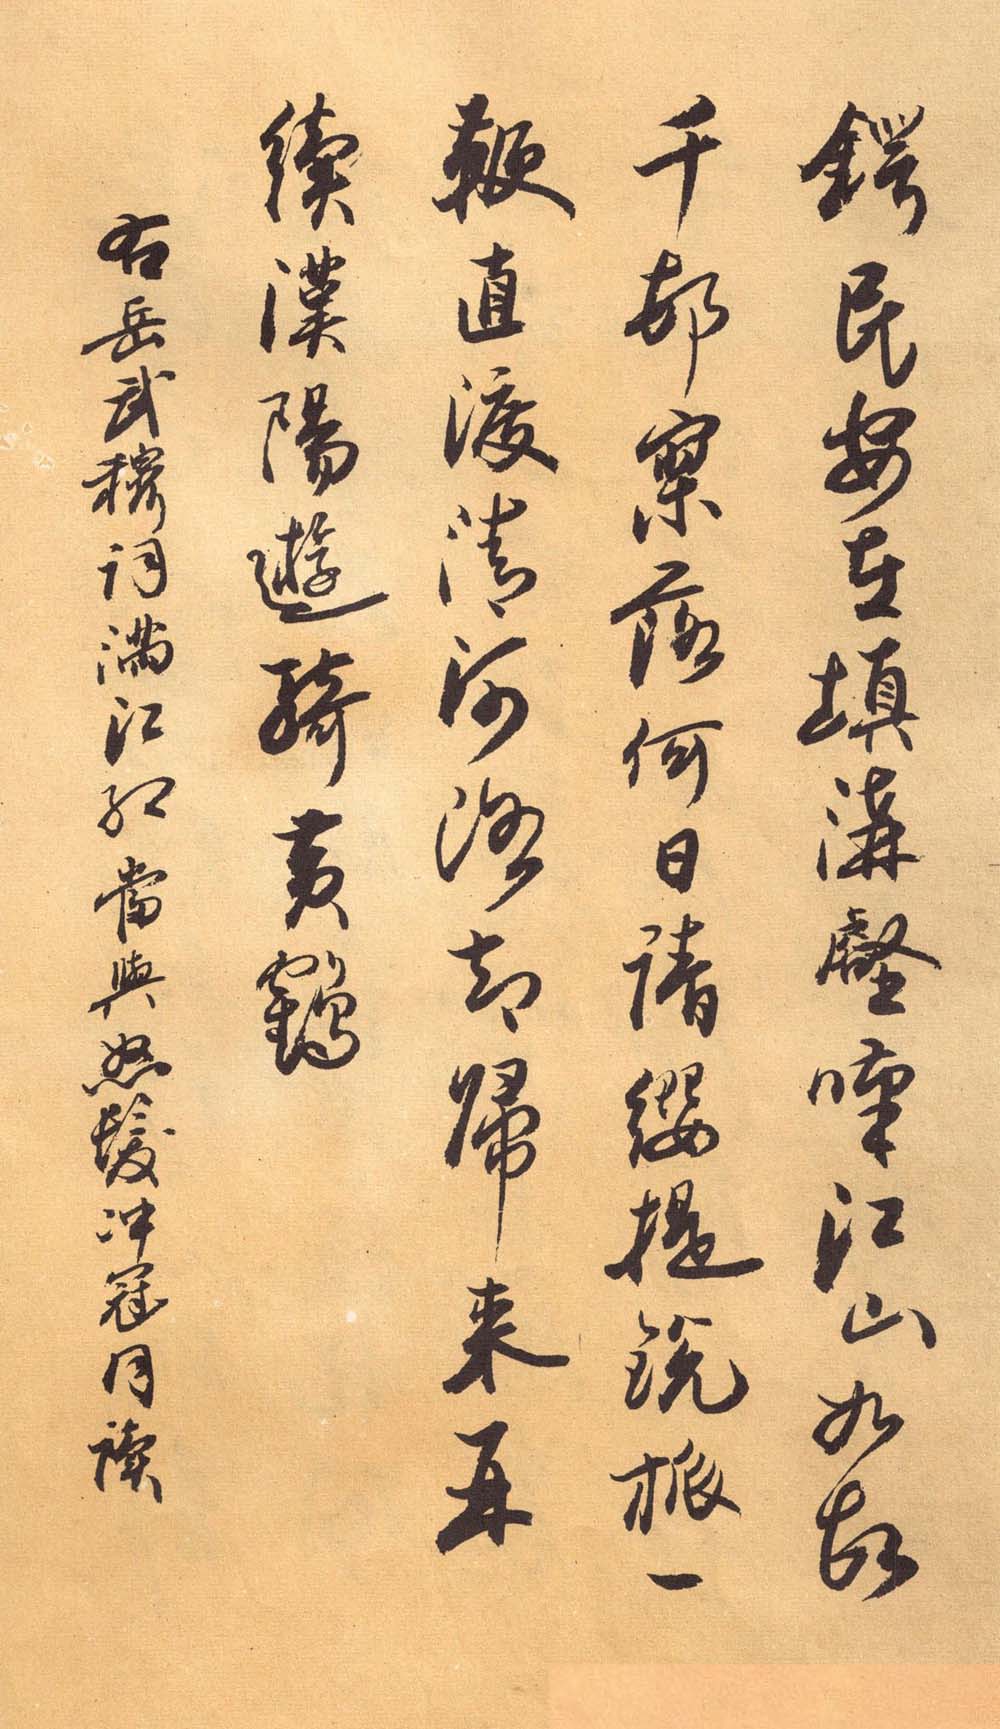 鍔民安在填溝壑嘆江山如故
千邨寥落何日請纓提銳旅一
鞭直渡清河洛却歸来再
續漢陽遊騎黄鶴
右岳武穆词满江红當與怒髮冲冠同讀